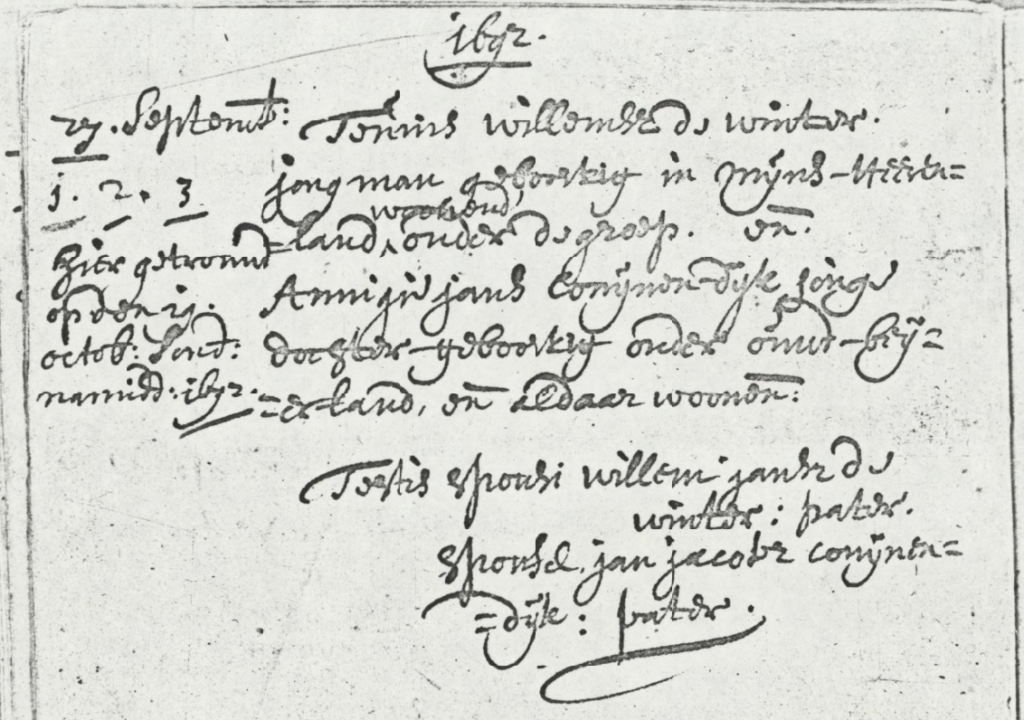 1692.
27. Septemb: Teunis willemsz de winter.
1. 2. 3 jong man geboortig in Mijns-Heeren=
woonend
=land, onder de groep. en
hier getrouwt
Annigie jans Conijnen-dijk jonge
op den 19.
octob: Sond: dochter geboortig onder oudt-beij=
namidd: 1692. =erland, en aldaar woonen:
Testis sponsi willem jansz de
winter: pater.
Sponsae. jan jacobsz conijnen=
=dijk: pater.